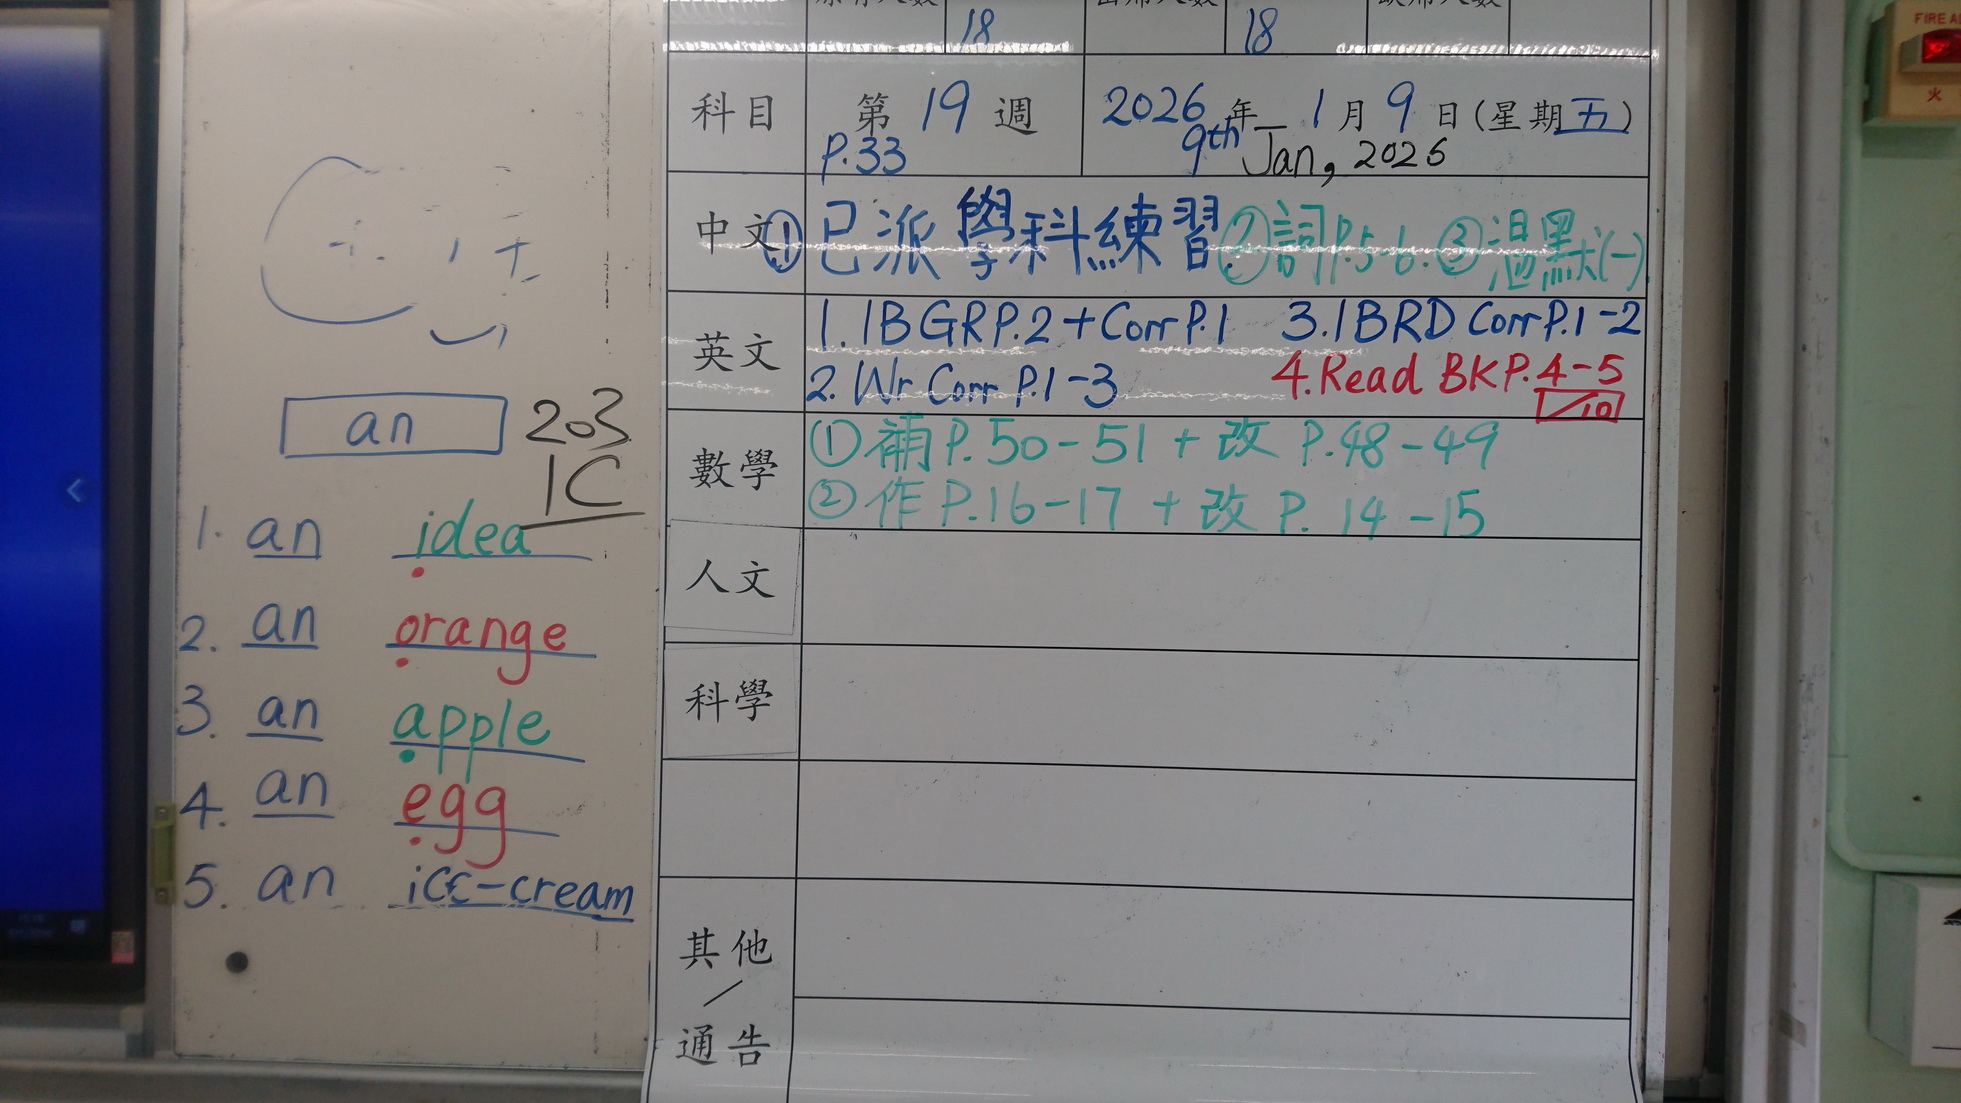 18
18
科目
第 19 週
2026 年 1 月 9 日(星期五)
P.33
9th Jan, 2026
中文
① 已派學科練習 ②詞P.5-6. ③溫默(一)
英文
1. 1B GR P.2 + Corr P.1
3. 1B RD Corr P.1-2
2. Wr Corr P.1-3
4. Read BK P.4-5
/10
數學
① 補 P.50-51 + 改 P.48-49
② 作 P.16-17 + 改 P. 14-15
人文
科學
其他
/
通告
an
203
1C
1. an idea
2. an orange
3. an apple
4. an egg
5. an ice-cream
火